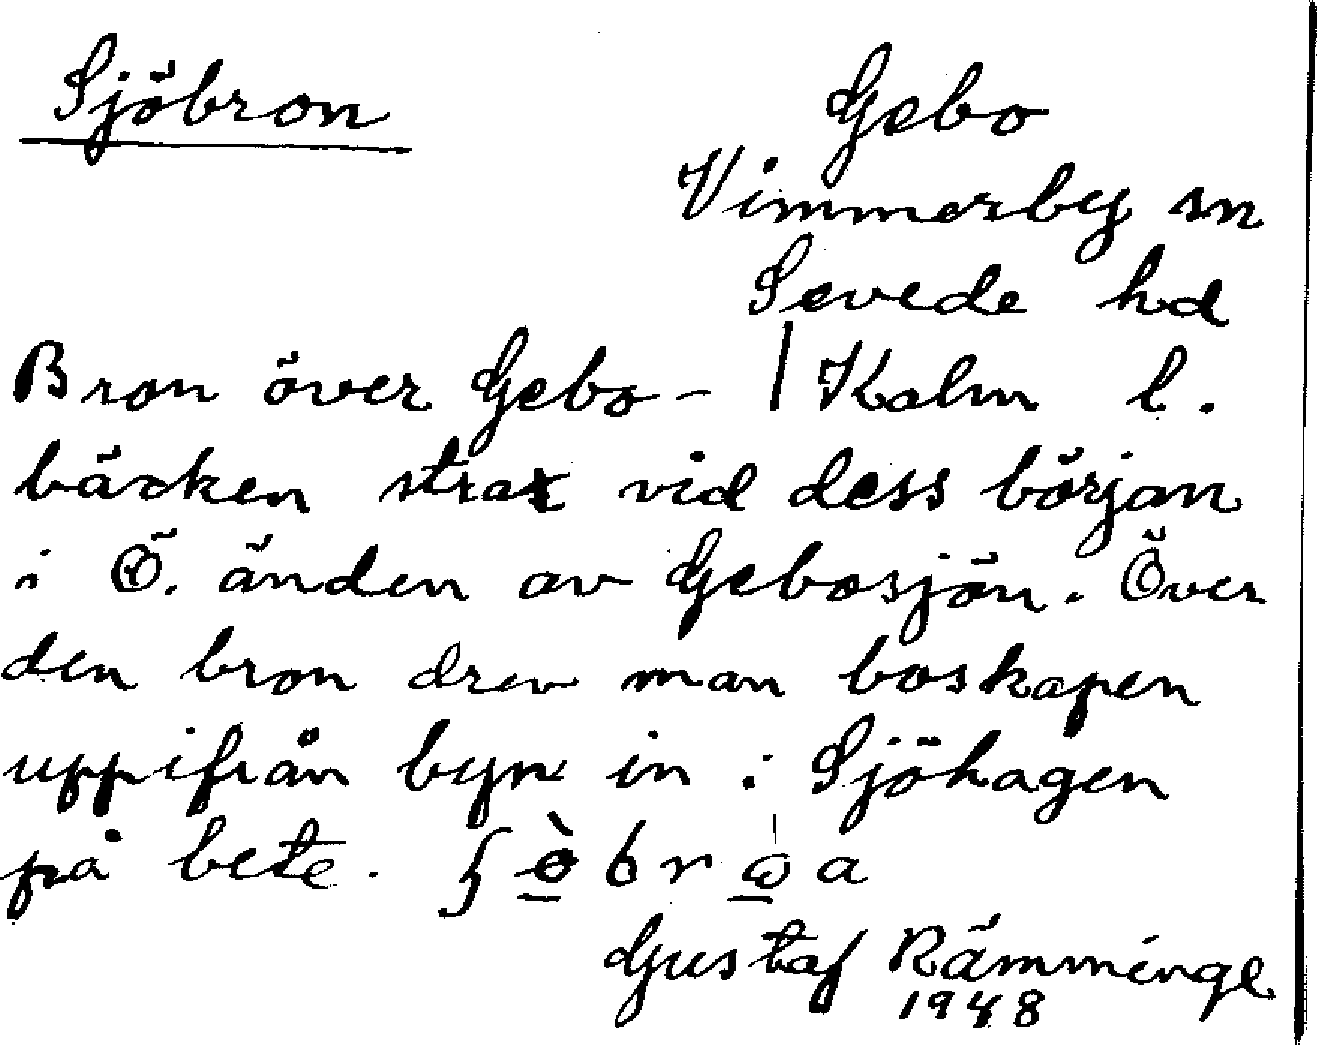 Sjöbron
Gebo
Vimmerby sn
Sevede hd
Kalm l.
Bron över Gebo-
bäcken strax vid dess början
i Ö. änden av Gebosjön. Över
den bron drev man boskapen
uppifrån byn in i Sjöhagen
på bete.
Gustaf Rämminge
1948